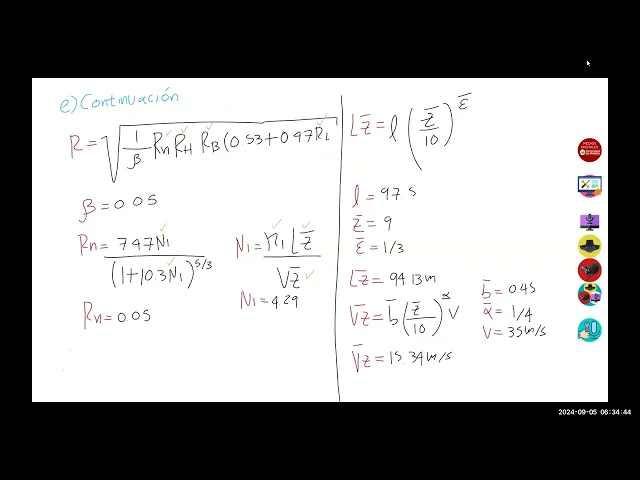 e) Continuación
R = √(1/β Rn RH RB (0.53 + 0.47 RL
β = 0.05
Rn = 7.47 N1 / (1 + 10.3 N1)^5/3
N1 = n1 L z̄ / V z̄
N1 = 4.29
Rn = 0.05
L z̄ = l (z̄/10)^ε̄
l = 97.5
z̄ = 9
ε̄ = 1/3
L z̄ = 94.13 m
V̄ z̄ = b̄ (z̄/10)^ᾱ V
b̄ = 0.45
ᾱ = 1/4
V = 35 m/s
V̄ z̄ = 15.34 m/s
2024-09-05 06:34:44